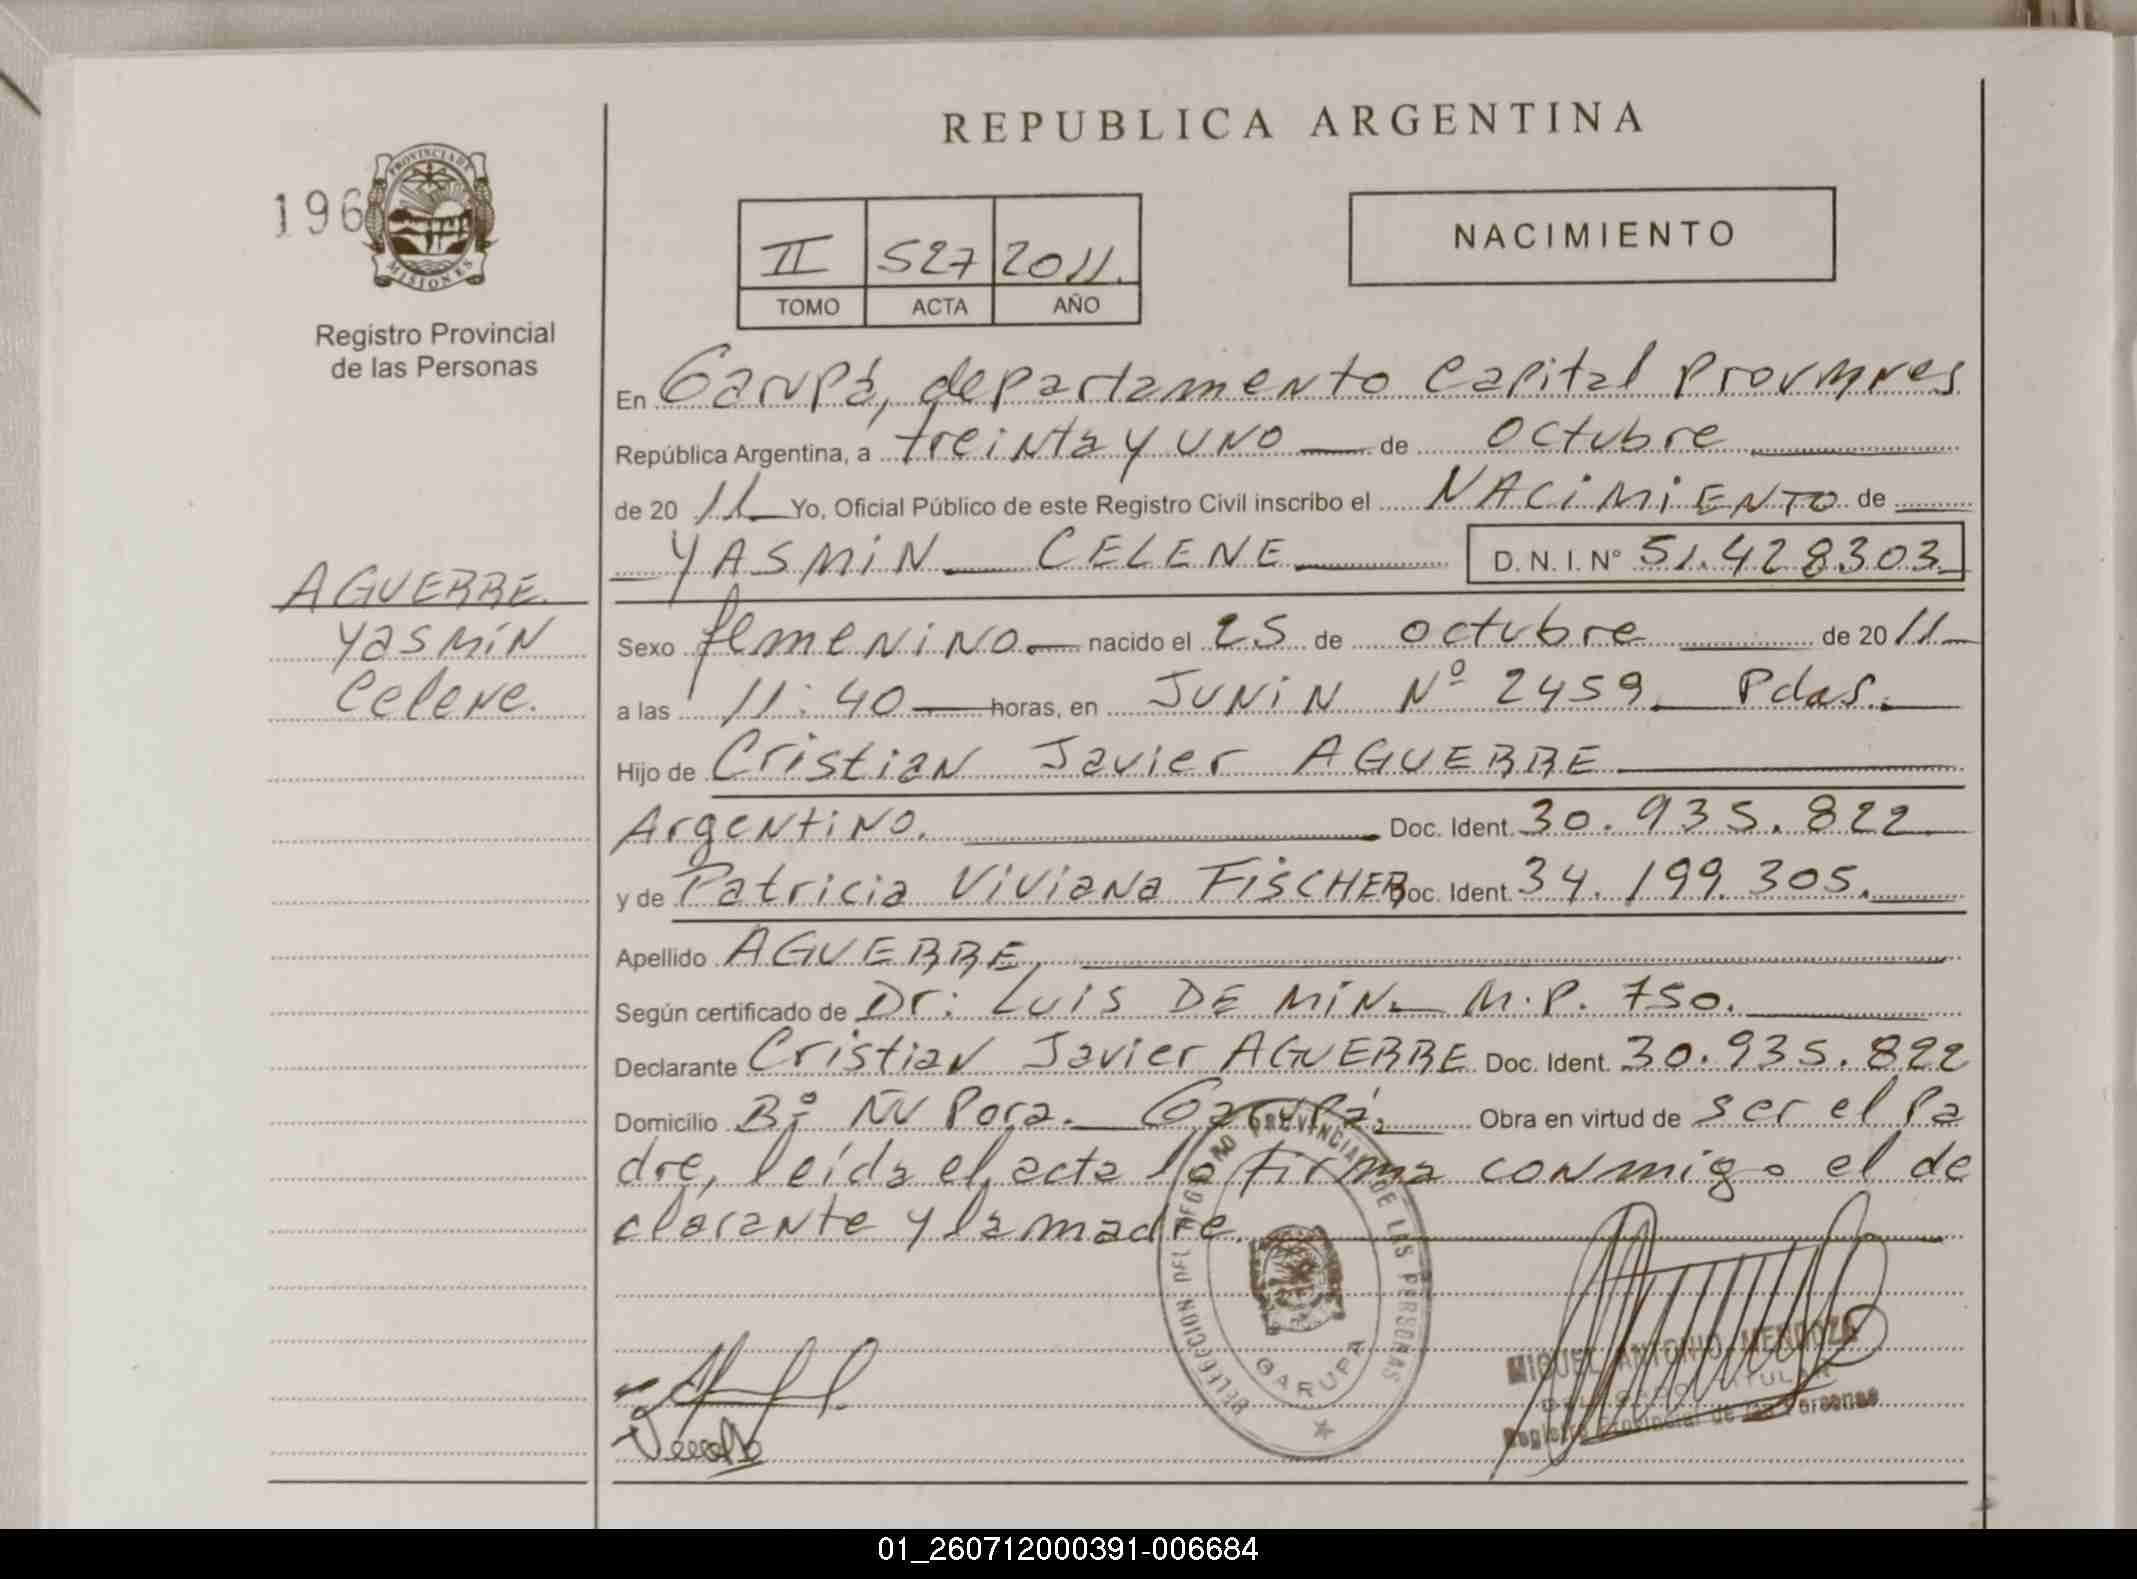 REPUBLICA ARGENTINA
196
PROVINCIA DE
MISIONES
Registro Provincial
de las Personas
II 527 2011.
TOMO ACTA AÑO
NACIMIENTO
En Garupá, departamento Capital
República Argentina, a treinta y uno de octubre
de 20 11 Yo, Oficial Público de este Registro Civil inscribo el NACIMIENTO de
YASMIN CELENE D. N. I. Nº 51.428.303
AGUERRE
Yasmin
Celene.
Sexo femenino nacido el 25 de octubre de 20 11
a las 11:40 horas, en JUNIN Nº 2459 Pdas.
Hijo de Cristian Javier AGUERRE
Argentino. Doc. Ident. 30.935.822
y de Patricia Viviana FISCHER Doc. Ident. 34.199.305.
Apellido AGUERRE
Según certificado de Dr: LUIS DE MIN M.P. 750.
Declarante Cristian Javier AGUERRE Doc. Ident. 30.935.822
Domicilio Bº Ñu Pora. Garupá. Obra en virtud de ser el Pa
dre, leída el acta la firma conmigo el de
clarante y la madre.
DELEGACION DEL REGISTRO PROVINCIAL DE LAS PERSONAS
GARUPA
MIGUEL ANTONIO MENDOZA
DELEGADO TITULAR
Registro Provincial de las Personas
01_260712000391-006684